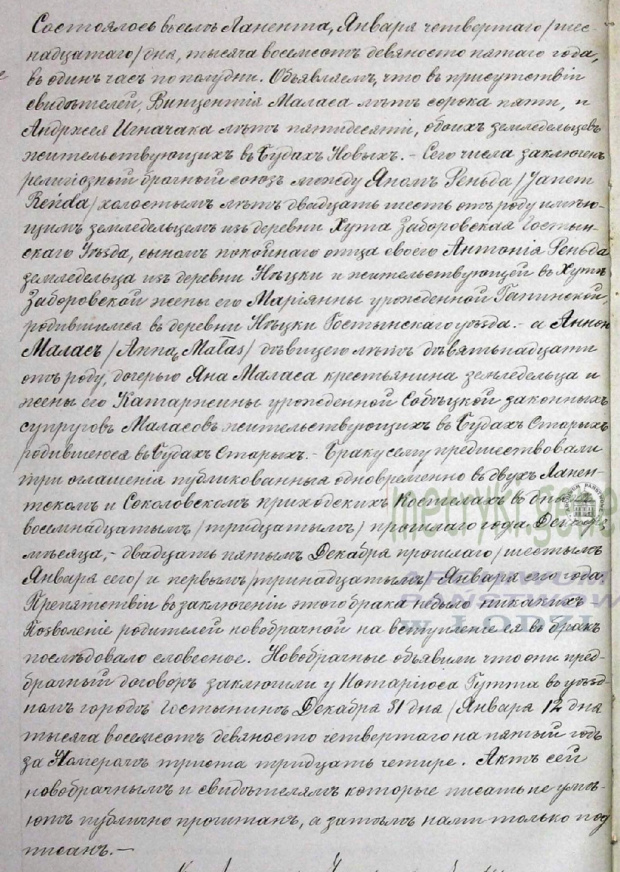 Состоялось въ селѣ Ланента, Января четвертаго /шес-
надцатаго/ дня, тысяча восемьсотъ девяносто пятаго года,
въ одинъ часъ по полудни. Объявляемъ, что въ присутствіи
свидѣтелей, Винцентія Маласа лѣтъ сорока пяти, и
Андржея Игначака лѣтъ пятидесяти, обоихъ земледельцевъ
жительствующихъ въ Будахъ Новыхъ. – Сего числа заключенъ
религіозный брачный союзъ между Яномъ Реньда /Janem
Renda/ холостымъ лѣтъ двадцать шесть отъ роду имѣю-
щимъ земледельцемъ изъ деревни Хута Заборовская Гостын-
скаго Уѣзда, сыномъ покойнаго отца своего Антонія Реньда
земледельца изъ деревни Нѣцки и жительствующей въ Хутѣ
Заборовской жены его Маріянны урожденной
родившимся въ деревни Нѣцки Гостынскаго уѣзда. – а Анною
Маласъ /Anną Małas/ дѣвицею лѣтъ дѣвятьнадцати
отъ роду, дочерью Яна Маласа крестьянина земледельца и
жены его Катаржины урожденной Собѣцкой законныхъ
супруговъ Маласовъ жительствующихъ въ Будахъ Старыхъ
родившеюся въ Будахъ Старыхъ. – Браку сему предшествовали
три оглашенія публикованныя одновременно въ двухъ Ланен-
тскомъ и Соколовскомъ приходскихъ Костелахъ въ дни
восемнадцатымъ /тридцатымъ/ прошлаго года Декабря
мѣсяца, – двадцать пятымъ Декабря прошлаго /шестымъ
Января сего/ и первымъ /тринадцатымъ/ Января сего года
Препятствіи въ заключеніи этого брака небыло никакихъ
Позволеніе родителей новобрачной на вступленіе въ бракъ
послѣдовало словесное. Новобрачные объявили что они пред-
брачный договоръ заключили у Нотаріюса Гутта въ уѣзд-
номъ городѣ Гостынинѣ Декабря 31 дня /Января 12 дня
тысяча восемьсотъ девяносто четвертаго на пятый годъ
за Номеромъ триста тридцать четире. Актъ сей
новобрачнымъ и свидѣтелямъ которые писать не умѣ-
ютъ публично прочитанъ, а затѣмъ нами только под
писанъ. –
metryki.gene
ARCHIWUM
PAŃSTWOW
w ŁODZI